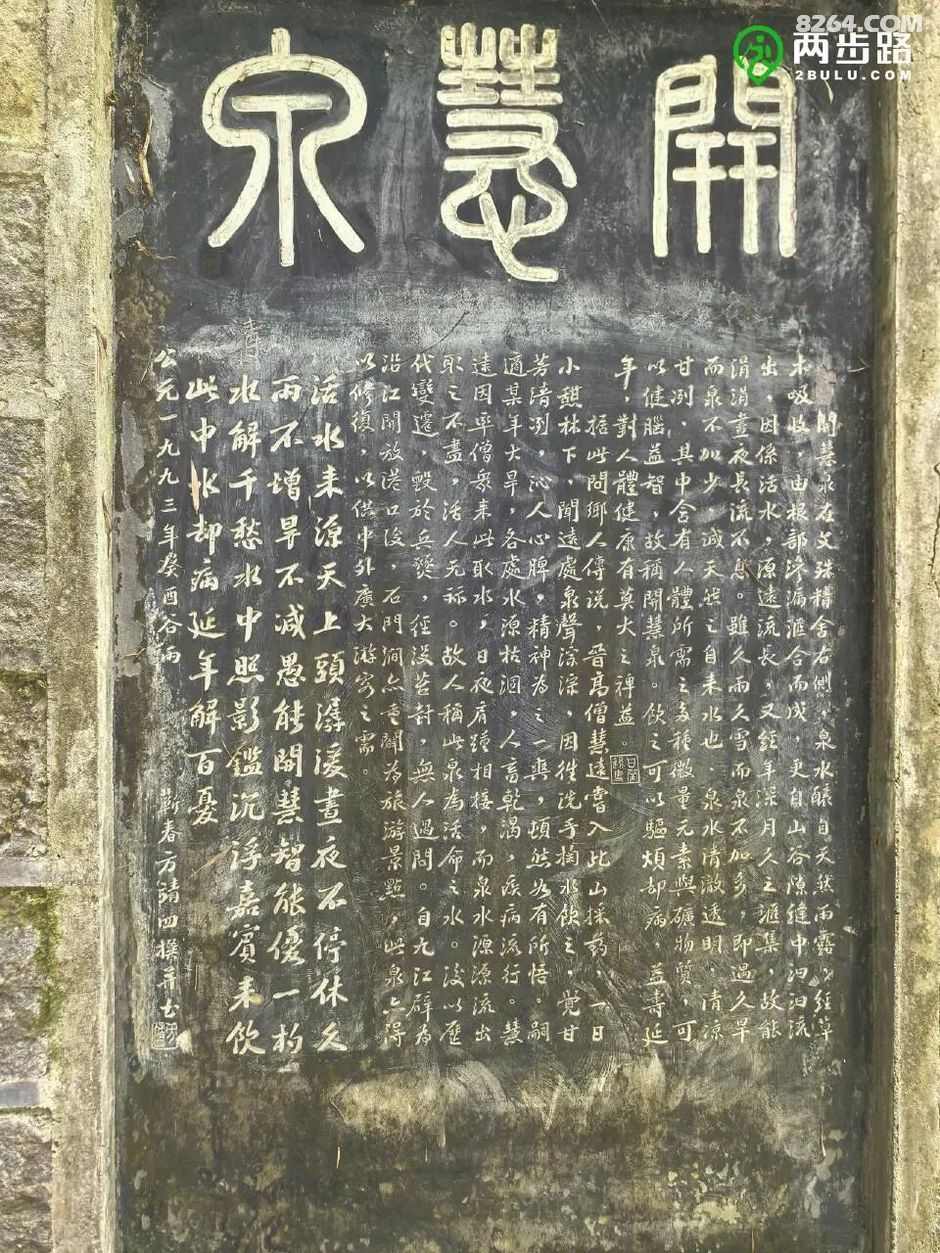 8264.COM
两步路
2BULU.COM
開慧泉
開慧泉在文殊精舍右側，泉水釀自天然雨露，經草
木吸收，由根部滲漏滙合而成，更自山谷隙縫中汩汩流
出，因係活水，源遠流長，又經年深月久之滙集，故能
涓涓晝夜長流不息。雖久雨久雪而泉不加多，即過久旱
而泉不加少，誠天然之自来水也．泉水清澈透明，清凉
甘冽，其中含有人體所需之多種微量元素與礦物質，可
以健腦益智，故稱開慧泉。飲之可以驅煩却病，益壽延
年，對人體健康有莫大之裨益。
据此間鄉人傳説，晋高僧慧遠嘗入此山採葯，一日
小憩林下，聞遠處泉聲淙淙，因徃洗手掬水飲之，覺甘
芳清冽，沁人心脾，精神為之一爽，頓然如有所悟。嗣
適某年大旱，各處水源枯涸，人畜乾渴，疾病流行。慧
遠因率僧衆来此取水，日夜肩踵相接，而泉水源源流出
取之不盡，活人无祘。故人稱此泉為活命之水。後以歷
代變遷，毀於兵燹，徑没苔封，無人過問。自九江辟為
沿江開放港口後，石門澗亦重闢為旅游景點，此泉亦得
以修復，以供中外廣大游客之需。
活水来源天上頭潺湲晝夜不停休久
雨不增旱不减愚能開慧智能優一杓
水解千愁水中照影鑑沉浮嘉賓来飲
此中水却病延年解百憂
公元一九九三年癸酉谷雨
蘄春方靖四撰并书